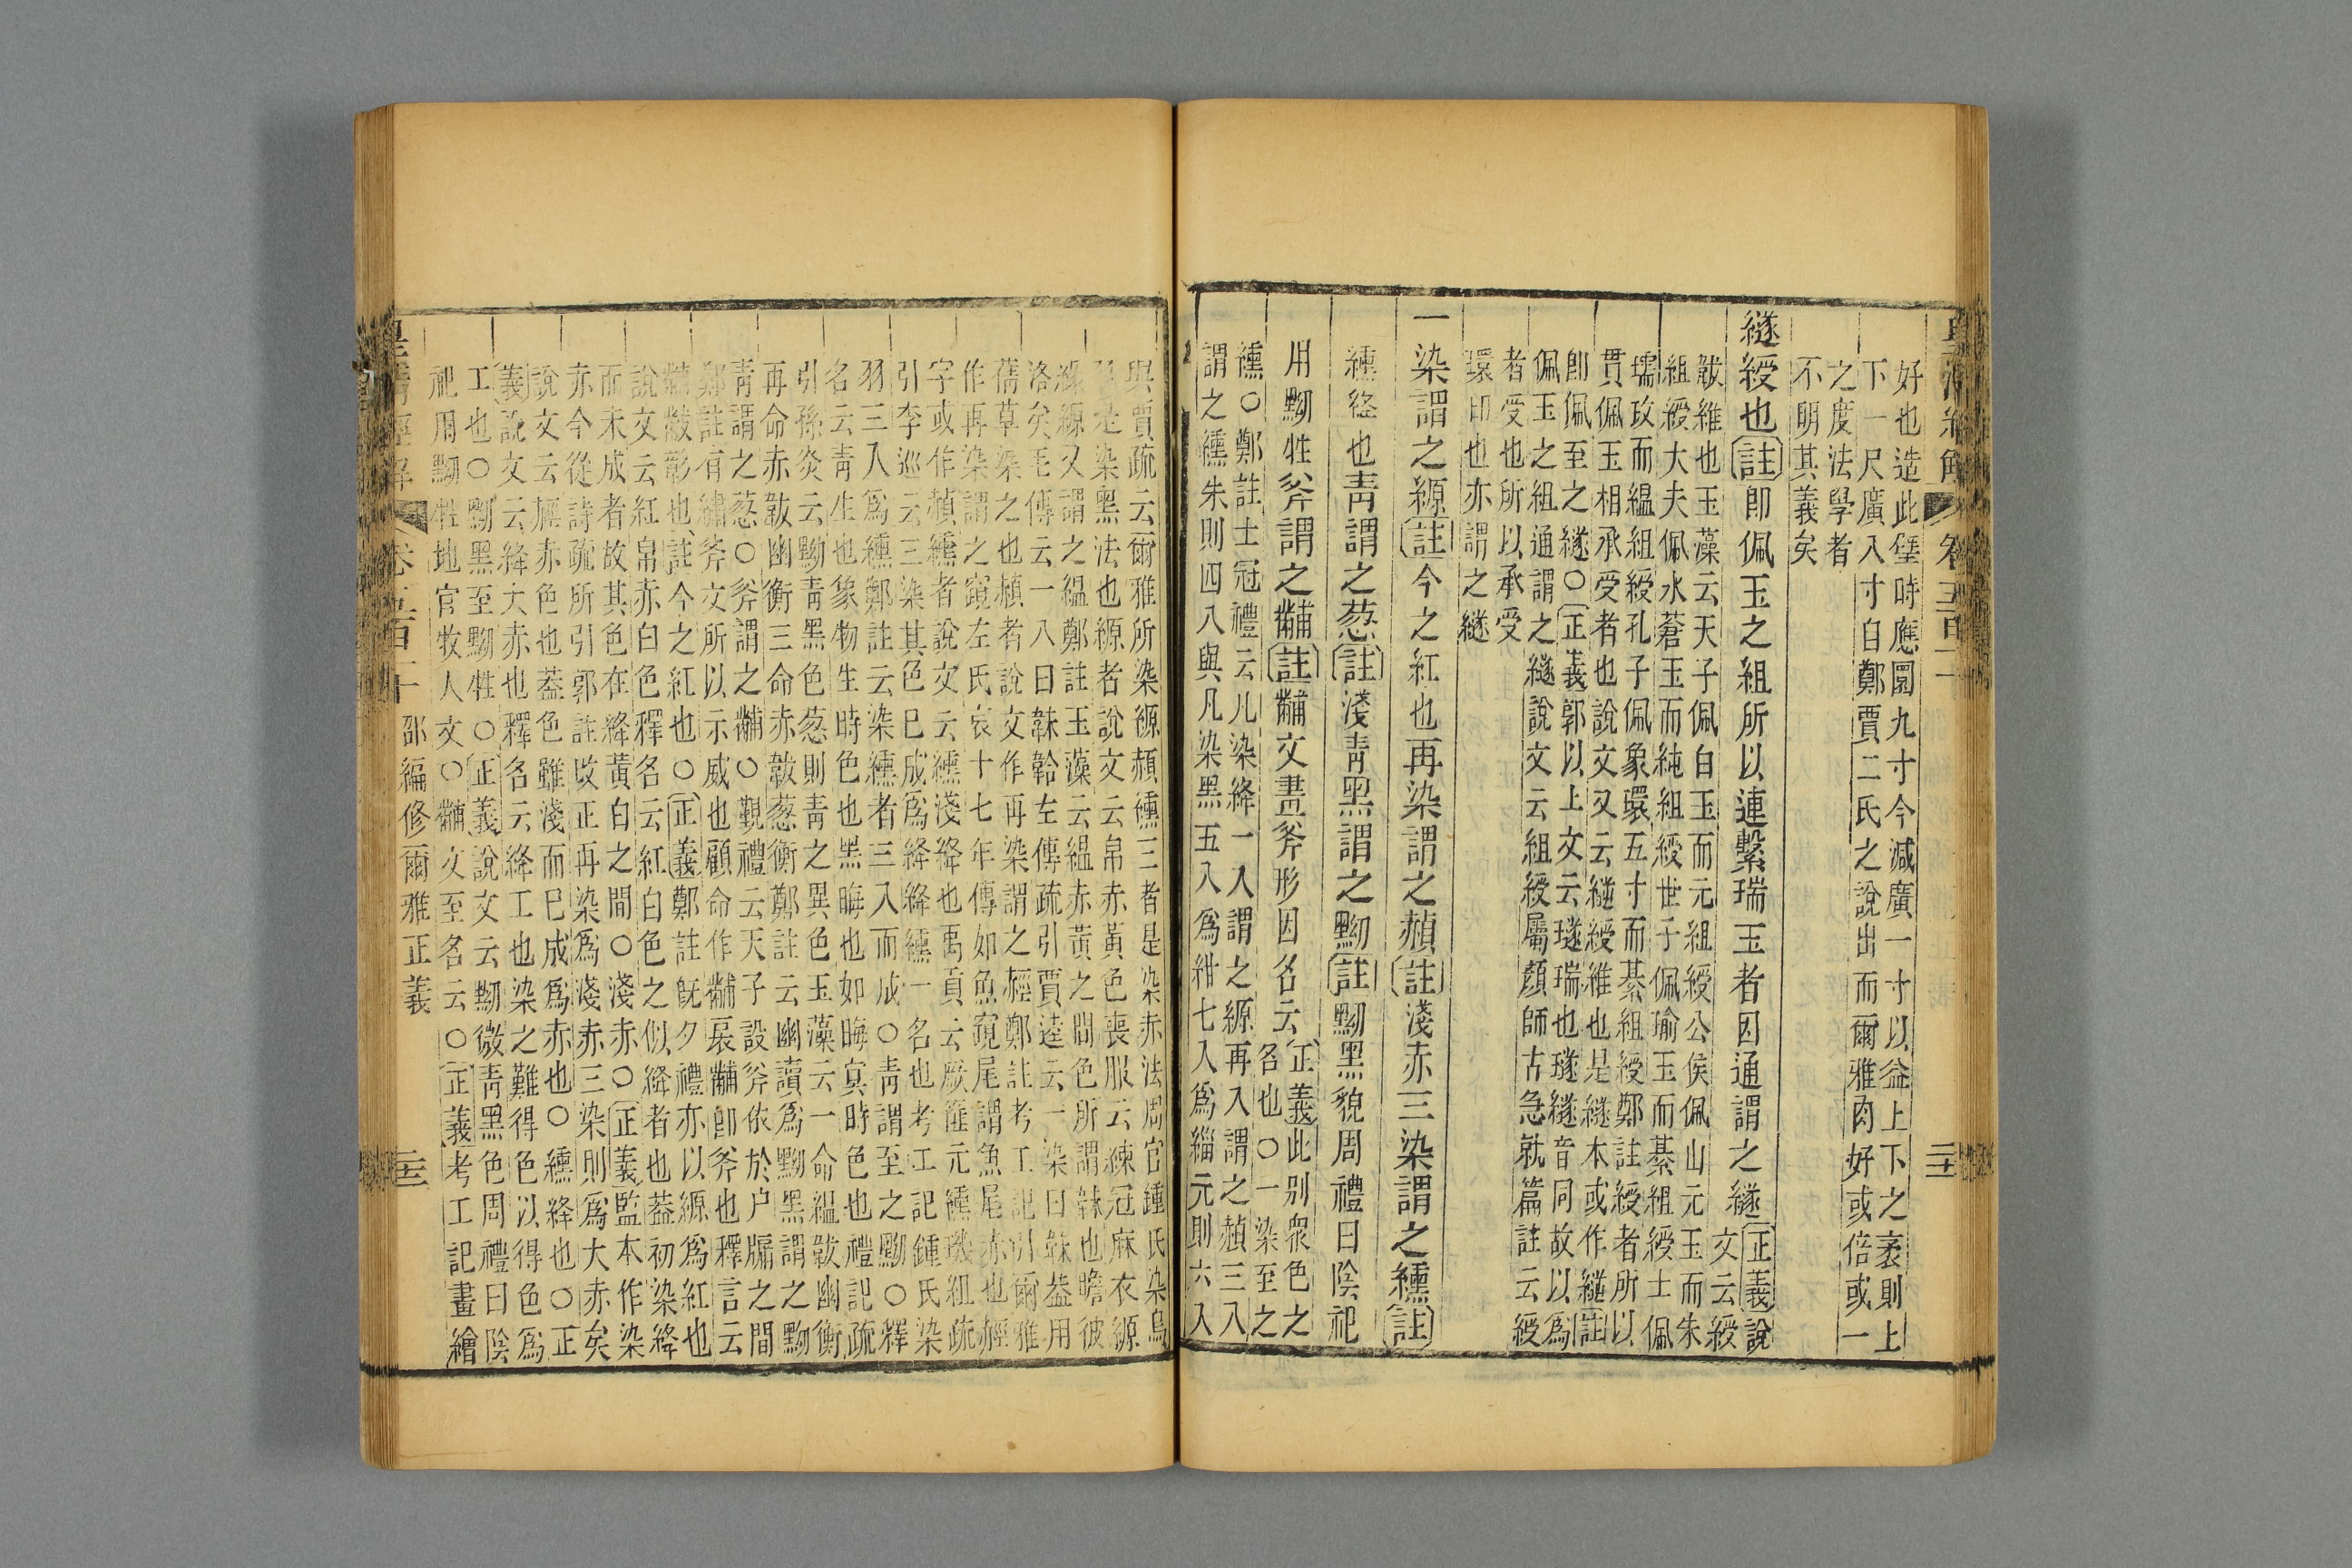 皇清經解 卷五百十 二十二
好也造此璧時應圜九寸今減廣一寸以益上下之袤則上
下一尺廣八寸自鄭賈二氏之說出而爾雅肉好或倍或一
之度法學者
不明其義矣
繸綬也註即佩玉之組所以連繫瑞玉者因通謂之繸正義說
文云綬
韍維也玉藻云天子佩白玉而元組綬公侯佩山元玉而朱
組綬大夫佩水蒼玉而純組綬世子佩瑜玉而綦組綬士佩
瓀玫而縕組綬孔子佩象環五寸而綦組綬鄭註綬者所以
貫佩玉相承受者也說文又云縌綬維也是繸本或作縌註
即佩至之繸○正義郭以上文云璲瑞也璲繸音同故以爲
佩玉之組通謂之繸說文云組綬屬顏師古急就篇註云綬
者受也所以承受
環印也亦謂之繸
一染謂之縓註今之紅也再染謂之赬註淺赤三染謂之纁註
纁絳也青謂之蔥註淺青黑謂之黝註黝黑貌周禮曰陰祀
用黝牲斧謂之黼註黼文畫斧形因名云正義此别衆色之
名也○一染至之
纁○鄭註士冠禮云凡染絳一入謂之縓再入謂之赬三入
謂之纁朱則四入與凡染黑五入爲紺七入爲緇元則六入
與賈疏云爾雅所染縓赬纁三者是染赤法周官鍾氏染鳥
羽是染黑法也縓者說文云帛赤黃色喪服云練冠麻衣縓
緣縓又謂之縕鄭註玉藻云縕赤黃之間色所謂韎也瞻彼
洛矣毛傳云一入曰韎韐左傳疏引賈逵云一染曰韎葢用
蒨草染之也赬者說文作再染謂之䞓鄭註考工記引爾雅
作再染謂之竀左氏哀十七年傳如魚竀尾謂魚尾赤也䞓
字或作楨纁者說文云纁淺絳也禹貢云厥篚元纁璣組疏
引李巡云三染其色已成爲絳絳纁一名也考工記鍾氏染
羽三入爲纁鄭註云染纁者三入而成○青謂至之黝○釋
名云青生也象物生時色也黑晦也如晦冥時色也禮記疏
引孫炎云黝青黑色蔥則青之異色玉藻云一命縕韍幽衡
再命赤韍幽衡三命赤韍蔥衡鄭註云幽讀爲黝黑謂之黝
青謂之蔥○斧謂之黼○覲禮云天子設斧依於户牖之間
鄭註有繡斧文所以示威也顧命作黼扆黼即斧也釋言云
黼黻彰也註今之紅也○正義鄭註旣夕禮亦以縓爲紅也
說文云紅帛赤白色釋名云紅白色之似絳者也葢初染絳
而未成者故其色在絳黃白之間○淺赤○正義監本作染
赤今從詩疏所引郭註改正再染爲淺赤三染則爲大赤矣
說文云䞓赤色也葢色雖淺而已成爲赤也○纁絳也○正
義說文云絳大赤也釋名云絳工也染之難得色以得色爲
工也○黝黑至黝牲○正義說文云黝微青黑色周禮曰陰
祀用黝牲地官牧人文○黼文至名云○正義考工記畫繪
皇清經解 卷五百十 邵編修爾雅正義 二十三